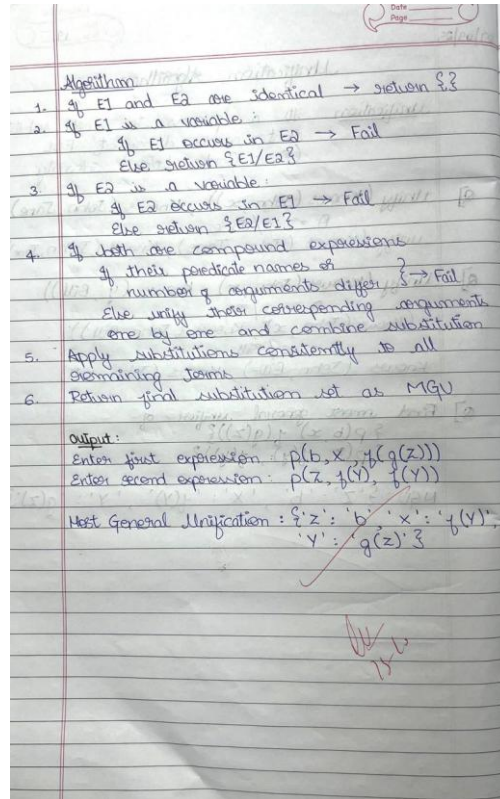 Date
Page
Algorithm
1. If E1 and E2 are identical → return {}
2. If E1 is a variable:
If E1 occurs in E2 → Fail
Else return {E1/E2}
3. If E2 is a variable:
If E2 occurs in E1 → Fail
Else return {E2/E1}
4. If both are compound expressions
If their predicate names or
number of arguments differ } → Fail
Else unify their corresponding arguments
one by one and combine substitution
5. Apply substitutions consistently to all
remaining terms
6. Return final substitution set as MGU
output:
Enter first expression: p(b, x, f(g(z)))
Enter second expression: p(z, f(Y), f(Y))
Most General Unification: {'z': 'b', 'x': 'f(Y)',
'Y': 'g(z)'}